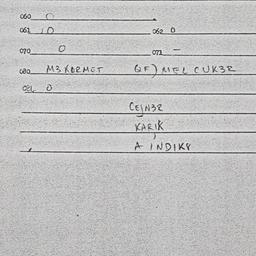 060 0
061 10 062 0
070 0 071 -
080 M3KORMET QF) MIEL CUK3R
081 0
CEJN3R
KARIK
A INDIK8